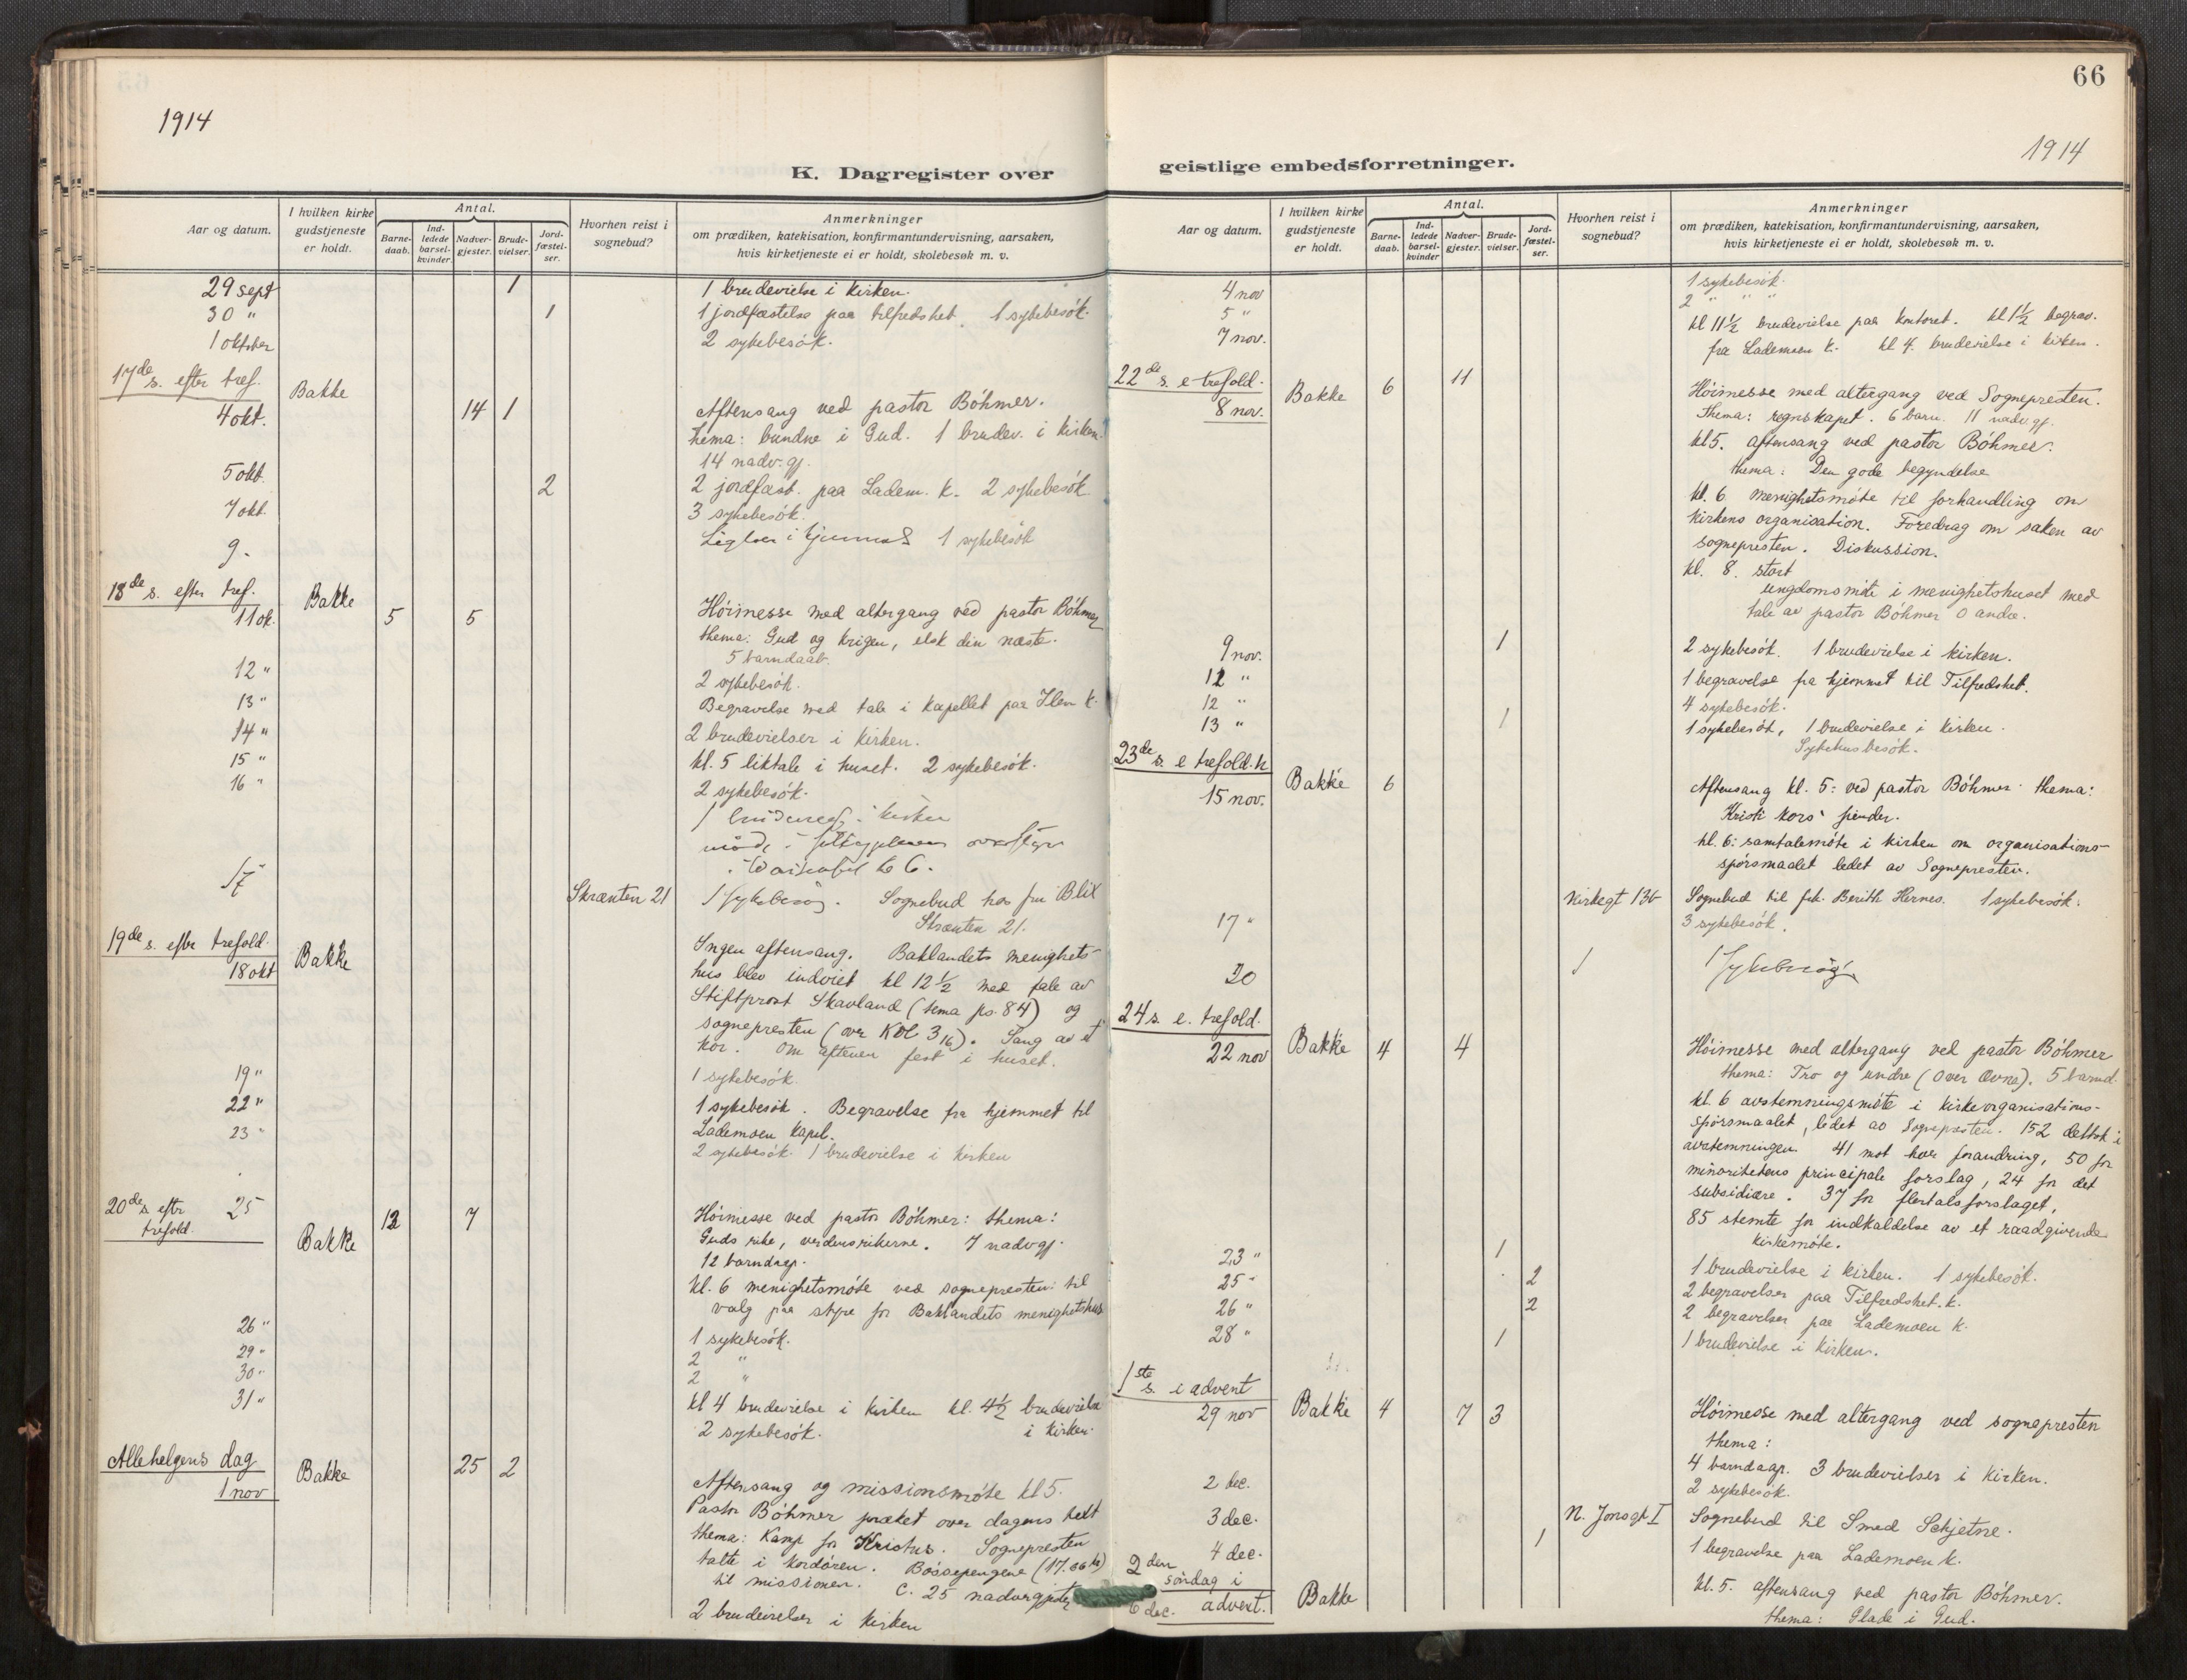 1914
K. Dagregister over
Aar og datum.
I hvilken kirke gudstjeneste er holdt.
Antal.
Barne-daab.
Ind-ledede barsel-kvinder.
Nadver-gjester.
Brude-vielser.
Jord-fæstel-ser.
Hvorhen reist i sognebud?
Anmerkninger
om prædiken, katekisation, konfirmantundervisning, aarsaken,
hvis kirketjeneste ei er holdt, skolebesøk m. v.
29 sept 1 1 brudevielse i kirken.
30 " 1 1 jordfæstelse paa tilfredshet. 1 sykebesök.
1 oktober 2 sykebesök.
17de s. efter tref.
4 okt. Bakke 14 1 Aftensang ved pastor Böhmer.
thema: bundne i Gud. 1 brudev. i kirken.
14 nadv. gj.
5 okt. 2 2 jordfæst. paa Ladem. k. 2 sykebesök
7 okt. 3 sykebesök.
9. 1 sykebesök
18de s. efter tref.
11 ok. Bakke 5 5 Höimesse med altergang ved pastor Böhmer
thema: Gud og krigen, elsk din næste.
5 barndaab.
12 " 2 sykebesök.
13 " Begravelse med tale i kapellet paa Ilen k.
14 " 2 brudevielser i kirken.
15 " kl. 5 liktale i huset. 2 sykebesök.
16 " 2 sykebesök.
1 i kirken
17 Skrænten 21 1 Sognebud hos fru Blix
Skrænten 21.
19de s. efter trefold.
18 okt Bakke Ingen aftensang. Baklandets menighets-
hus blev indviet kl 12½ med tale av
Stiftprost Skavland (tema ps. 84) og
sognepresten (over Kol 3 16). Sang av et
kor. Om aftenen fest i huset.
19 " 1 sykebesök.
22 " 1 sykebesök. Begravelse fra hjemmet til
Lademoen kapel.
23 " 2 sykebesök. 1 brudevielse i kirken
20de s. eftr trefold. 25
Bakke 12 7 Höimesse ved pastor Böhmer: thema:
Guds rike, verdensrikerne. 7 nadv.gj.
12 barndaap.
kl. 6 menighetsmöte ved sognepresten til
valg paa styre for Baklandets menighetshus
26 " 1 sykebesök.
29 " 2 "
30 " 2 "
31 " kl 4 brudevielse i kirken kl. 4½ brudevielse
2 sykebesök. i kirken.
Allehelgens dag
1 nov Bakke 25 2 Aftensang og missionsmöte kl 5.
Pastor Böhmer præket over dagens tekst
thema: Kamp for Kristus. Sognepresten
talte i kordören. Bössepengene
til missionen. C. 25 nadvergjester
2 brudevielser i kirken
66
1914
geistlige embedsforretninger.
Aar og datum.
I hvilken kirke gudstjeneste er holdt.
Antal.
Barne-daab.
Ind-ledede barsel-kvinder
Nadver-gjester.
Brude-vielser.
Jord-fæstel-ser.
Hvorhen reist i sognebud?
Anmerkninger
om prædiken, katekisation, konfirmantundervisning, aarsaken,
hvis kirketjeneste ei er holdt, skolebesøk m. v.
4 nov 1 sykebesök.
5 " 2 " " "
7 nov. kl 11½ brudevielse paa kontoret. kl 1½ begrav.
fra Lademoen k. kl 4. brudevielse i kirken.
22de s. e trefold.
8 nov. Bakke 6 11 Höimesse med altergang ved Sognepresten.
Thema: regnskapet. 6 barn. 11 nadv. gj.
kl 5. aftensang ved pastor Böhmer.
thema: Den gode begyndelse
kl. 6 menighetsmöte til forhandling om
kirkens organisation. Foredrag om saken av
sognepresten. Diskussion.
kl. 8. stort
ungdomsmöte i menighetshuset med
tale av pastor Böhmer o andre.
9 nov. 1 2 sykebesök. 1 brudevielse i kirken.
12 " 1 begravelse fra hjemmet til Tilfredshet.
12 " 4 sykebesök.
13 " 1 1 sykebesök, 1 brudevielse i kirken.
Sykehusbesök.
23de s. e trefold.h
15 nov. Bakke 6 Aftensang kl. 5: ved pastor Böhmer. thema:
Kristi kors' fiender.
kl. 6: samtalemöte i kirken om organisations-
spörsmaalet ledet av Sognepresten.
Kirkegt 13b Sognebud til frk. Berith Hernes. 1 sykebesök.
17 " 3 sykebesök.
20 1 1 Sykebesög
24 s. e. trefold.
22 nov Bakke 4 4 Höimesse med altergang ved pastor Böhmer
thema: Tro og undre (over evne). 5 barnd.
kl. 6 avstemningsmöte i kirkeorganisations-
spörsmaalet, ledet av Sognepresten. 152 deltok i
avstemningen. 41 mot hver forandring, 50 for
minoritetens principale forslag, 24 for det
subsidiære. 37 for flertalsforslaget,
85 stemte for indkaldelse av et raadgivende
kirkemöte.
23 " 1 1 brudevielse i kirken. 1 sykebesök.
25 " 2 2 begravelser paa Tilfredshet. k.
26 " 2 2 begravelser paa Lademoen k.
28 " 1 1 brudevielse i kirken.
1ste s. i advent
29 nov Bakke 4 7 3 Höimesse med altergang ved sognepresten
thema:
4 barndaap. 3 brudevielser i kirken.
2 dec. 2 sykebesök.
3 dec. N. Jonsgt I Sognebud til Smed Schjetne.
4 dec. 1 1 begravelse paa Lademoen k.
2den söndag i advent.
6 dec. Bakke kl. 5. aftensang ved pastor Böhmer.
thema: Glade i Gud.